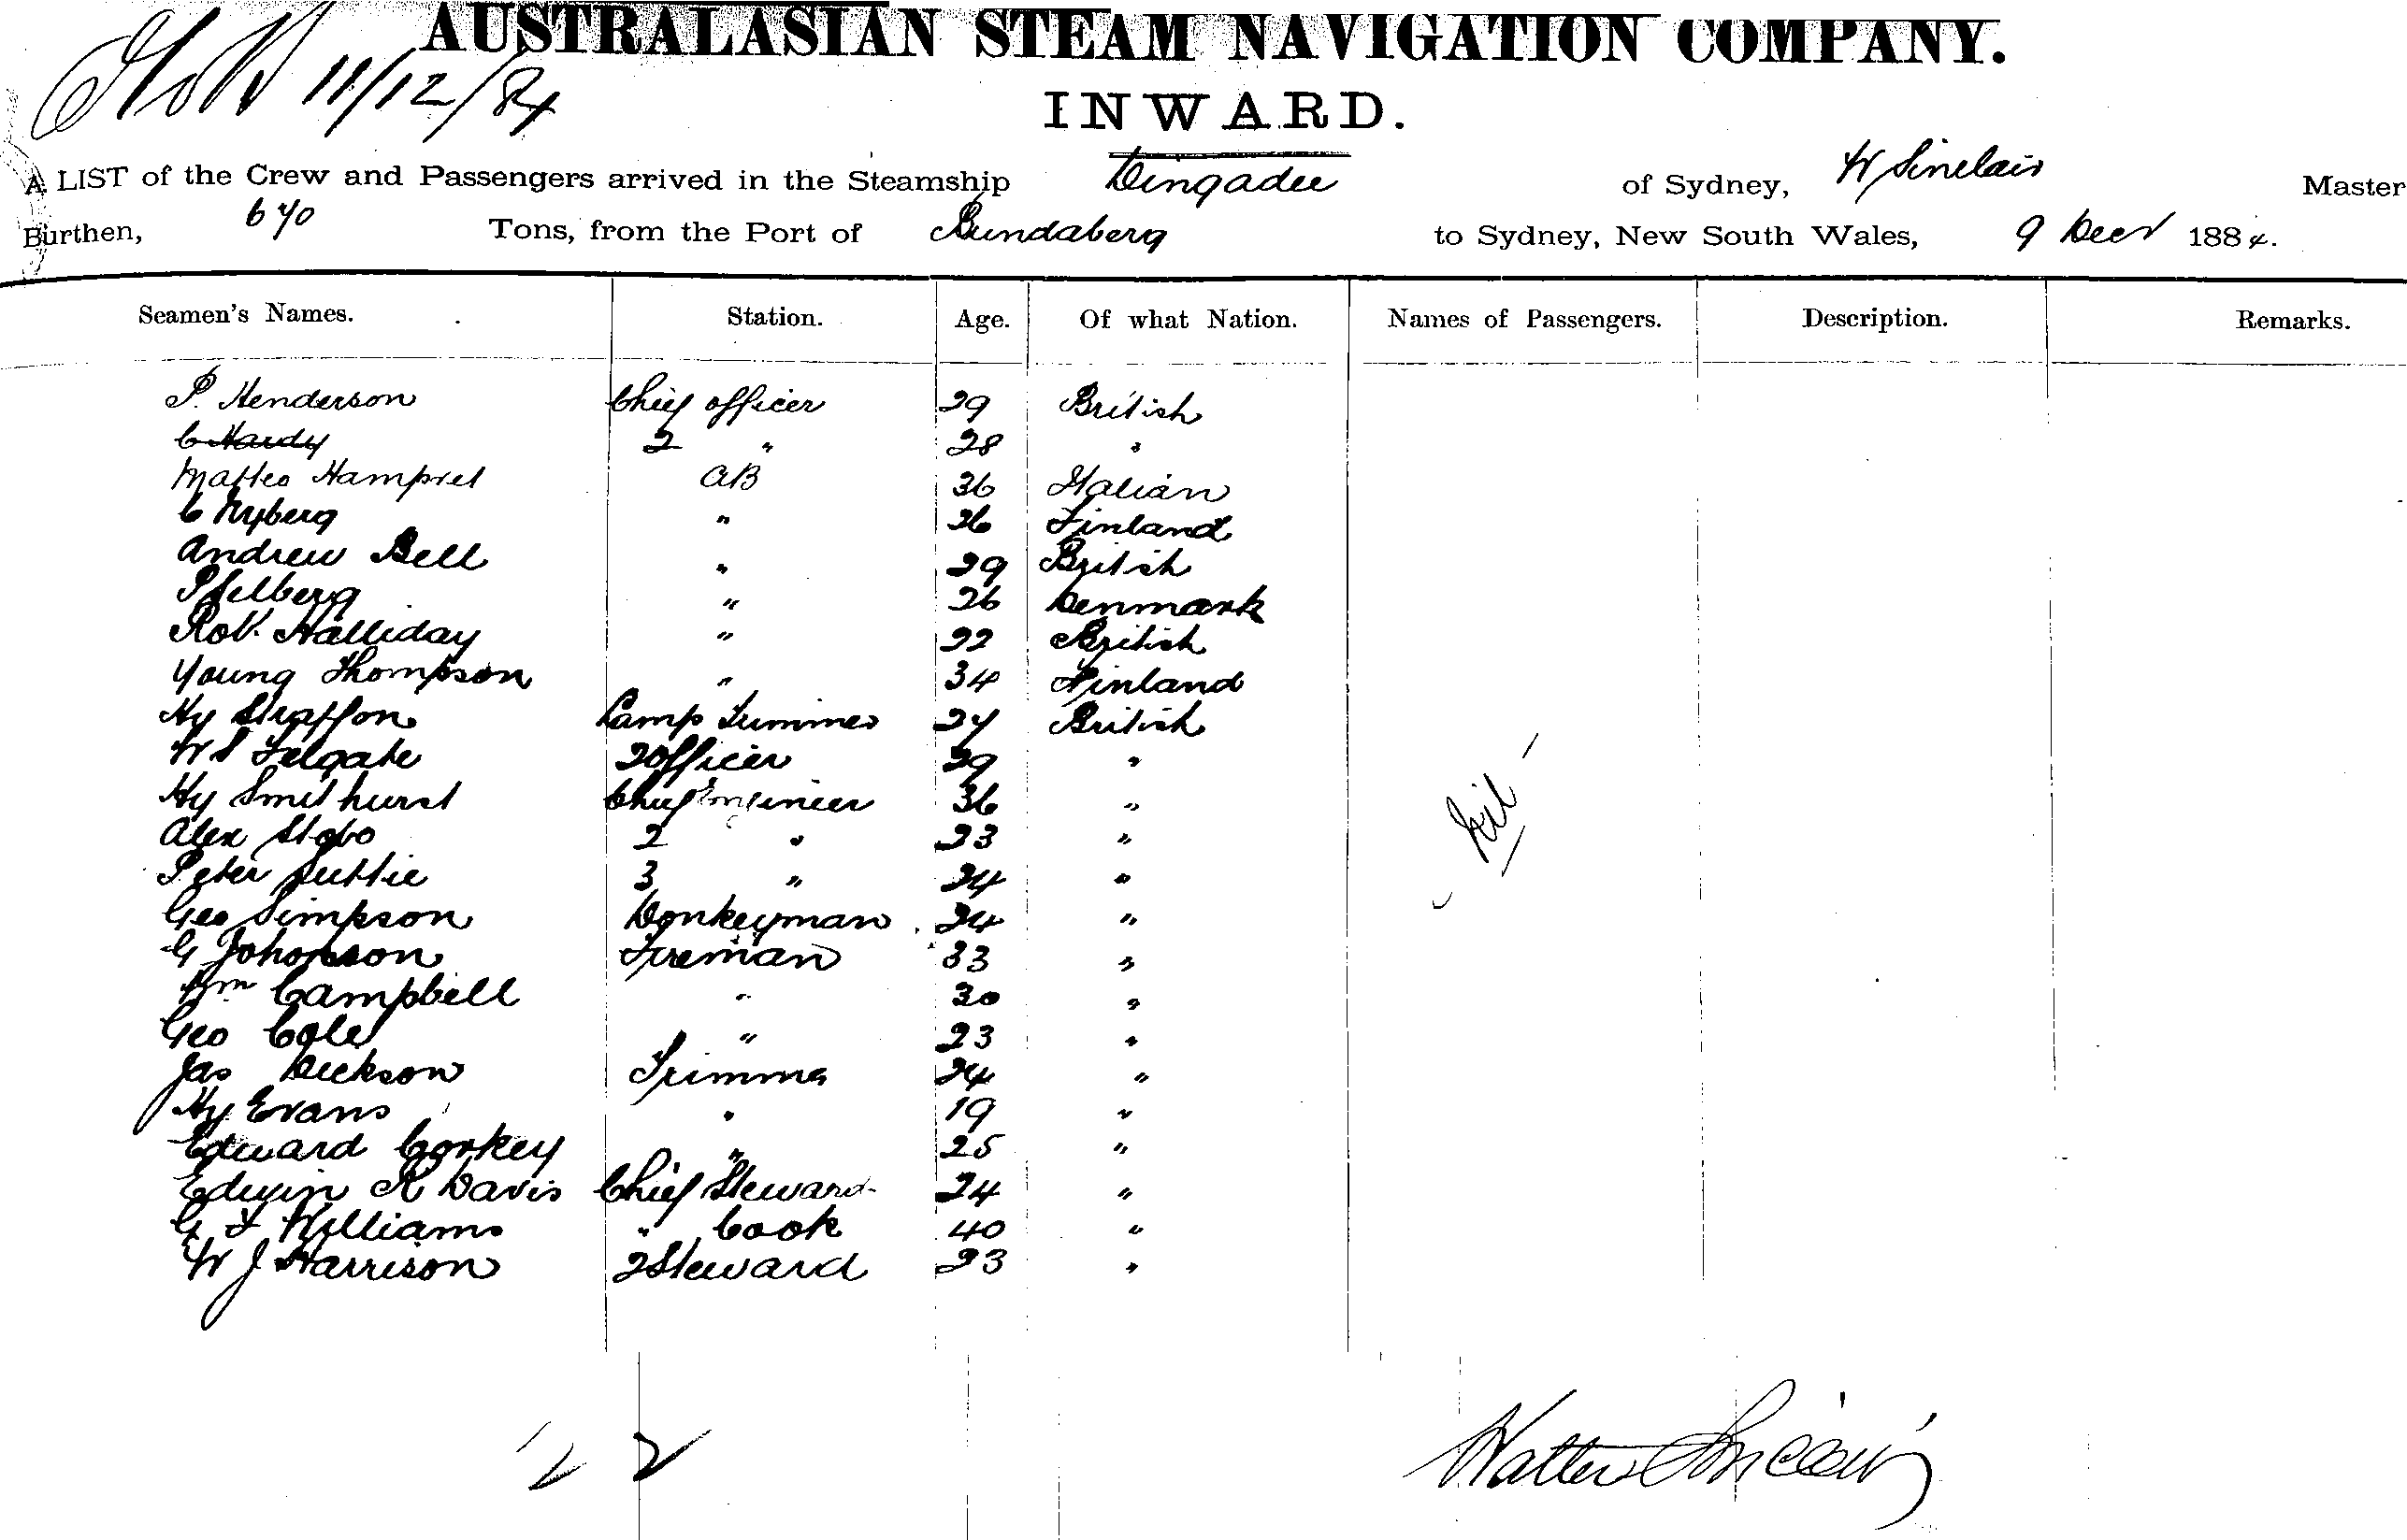 AUSTRALASIAN STEAM NAVIGATION COMPANY.
11/12/84
INWARD.
A LIST of the Crew and Passengers arrived in the Steamship Dingadee of Sydney, W Sinclair Master
Burthen, 640 Tons, from the Port of Bundaberg to Sydney, New South Wales, 9 Decr 1884.
Seamen's Names. Station. Age. Of what Nation. Names of Passengers. Description. Remarks.
P. Henderson Chief officer 29 British
C Hardy 2 " 28 "
Matteo AB 36 Italian
C Nyberg " 26 Finland
Andrew Bell " 29 British
P Selberg " 26 Denmark
Robt. Halliday " 22 British
Young Thompson " 34 Finland
Hy Straffon Lamp Trimmer 24 British
W S Felgate 2 Officer 29 "
Hy Smithurst Chief Engineer 36 "
Alex Stobo 2 " 23 "
Peter Suttie 3 " 24 "
Geo Simpson Donkeyman 24 "
G Johonson Fireman 33 "
Wm Campbell " 30 "
Geo Cole " 23 "
Jas Dickson Trimmer 24 "
Hy Evans " 19 "
Edward Corkey " 25 "
Edwin R Davis Chief Steward 24 "
G F Williams " Cook 40 "
W J Harrison 2 Steward 23 "
- Nil -
22
Walter Sinclair